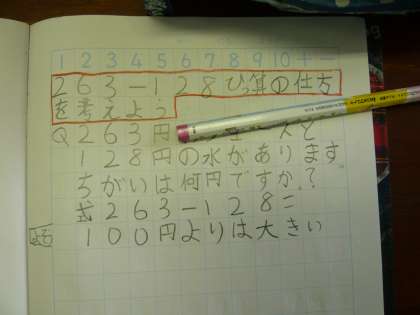 1 2 3 4 5 6 7 8 9 10 十 一
263-128ひっ算の仕方
を考えよう
Q263円 と
128円の水があります
ちがいは何円ですか?
式263-128=
よそう 100円よりは大きい